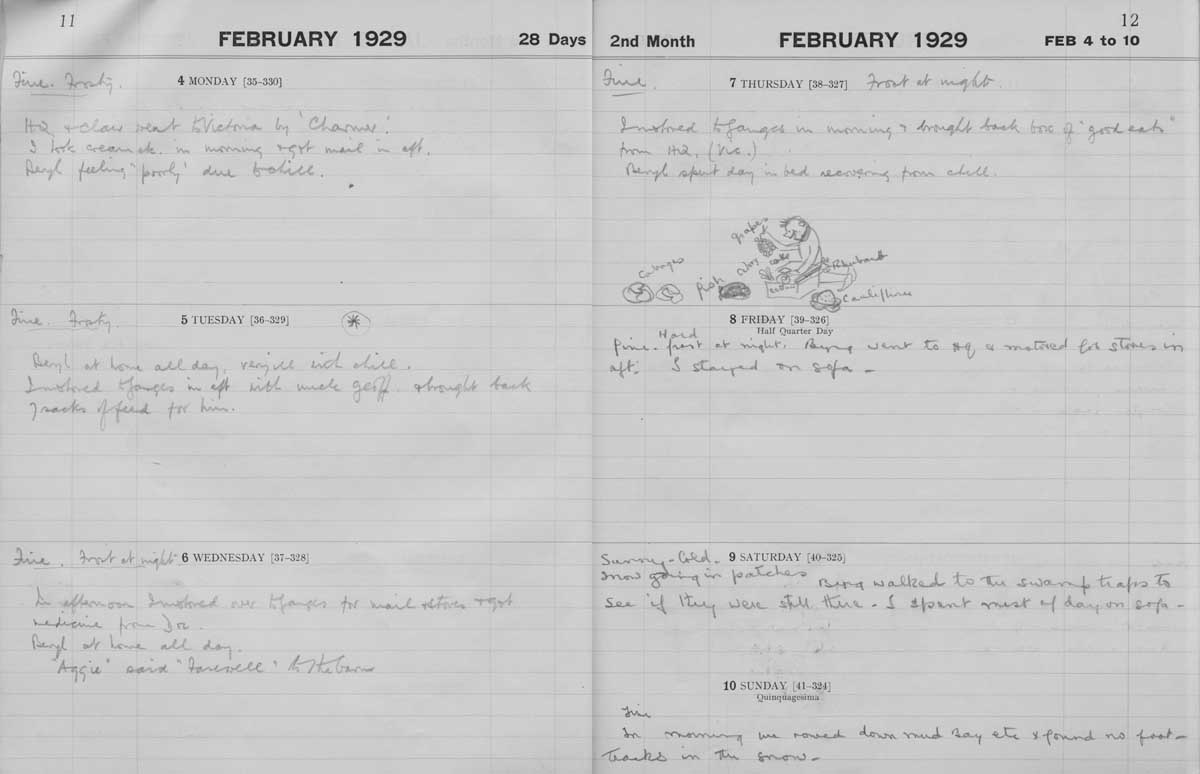 11
FEBRUARY 1929
28 Days
Fine. Frosty.
4 MONDAY [35-330]
HQ & Clare went to Victoria by 'Charmer'.
I took cream etc. in morning & got mail in aft.
Beryl feeling "poorly" due to chill.
Fine. Frosty.
5 TUESDAY [36-329]
Beryl at home all day, very ill with chill.
I motored to Ganges in aft with uncle Geoff. & brought back
7 sacks of feed for him.
Fine. Frost at night
6 WEDNESDAY [37-328]
In afternoon I motored over to Ganges for mail & stores & got
medicine from Doc.
Beryl at home all day.
"Aggie" said "Farewell" to the barn
2nd Month
FEBRUARY 1929
12
FEB 4 to 10
Fine.
7 THURSDAY [38-327]
Frost at night.
I motored to Ganges in morning & brought back box of "good eats"
from HQ. (Vic.)
Beryl spent day in bed recovering from chill.
grapes
cabbages
fish
Rhubarb
Cauliflower
8 FRIDAY [39-326]
Half Quarter Day
Hard
Fine. frost at night. went to HQ & motored for stores in
aft. I stayed on sofa -
Sunny - Cold.
9 SATURDAY [40-325]
Snow going in patches
walked to the swamp traps to
see if they were still there - I spent most of day on sofa -
10 SUNDAY [41-324]
Quinquagesima
Fine
In morning we rowed down mud bay etc & found no foot-
tracks in the snow -